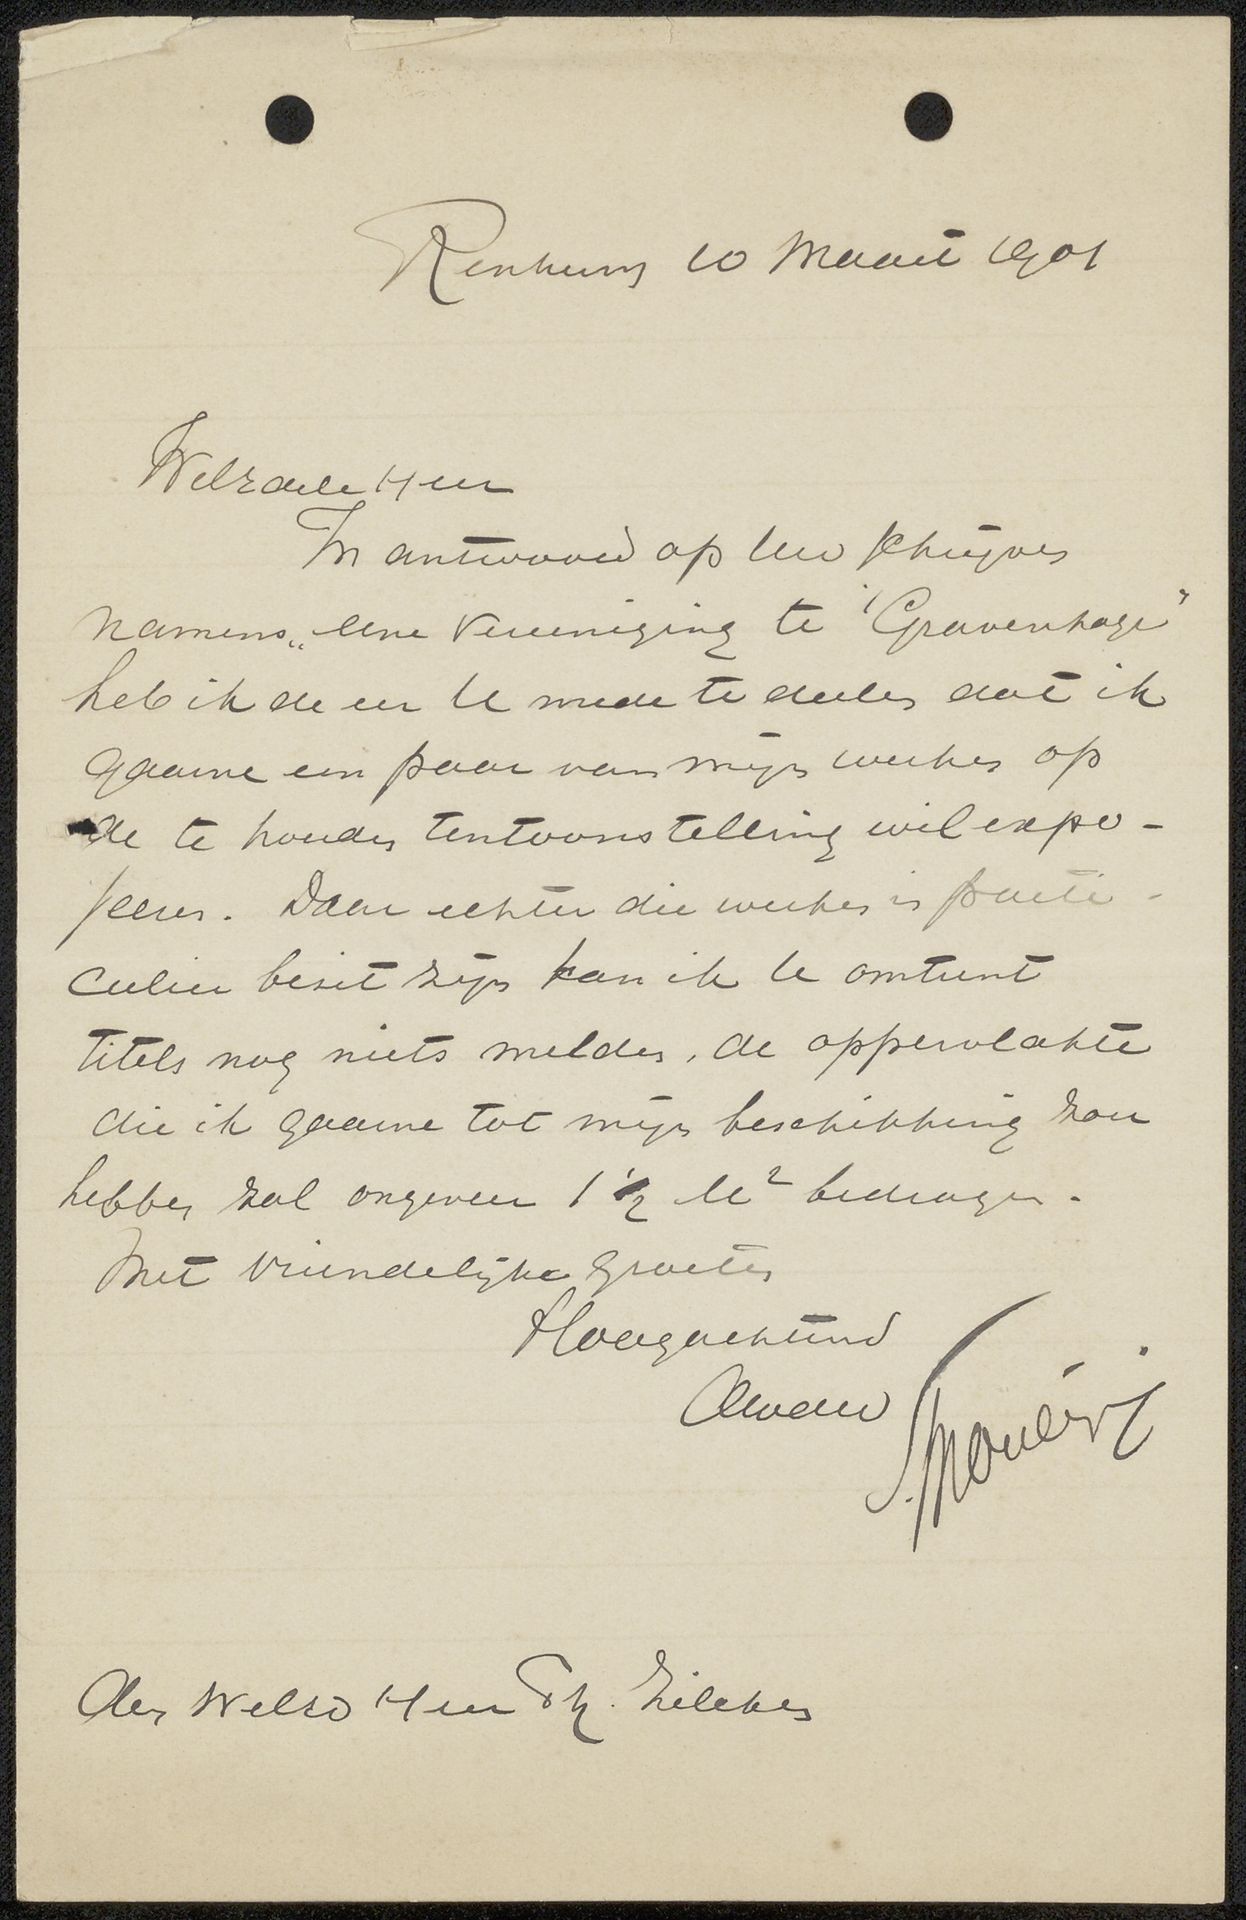 Renkum 10 Maart 1901
WelEdele Heer
In antwoord op Uw schrijven
namens „eene Vereeniging te 's Gravenhage"
heb ik de eer U mede te deelen dat ik
gaarne een paar van mijn werken op
de te houden tentoonstelling wil expo-
seeren. Daar echter die werken in parti-
culier bezit zijn kan ik U omtrent
titels nog niets melden, de oppervlakte
die ik gaarne tot mijn beschikking zou
hebben zal ongeveer 1 1/2 M² bedragen.
Met vriendelijke groeten
Hoogachtend
Uw dw
S. Moulijn
Den WelEd Heer Ph. Zilcken